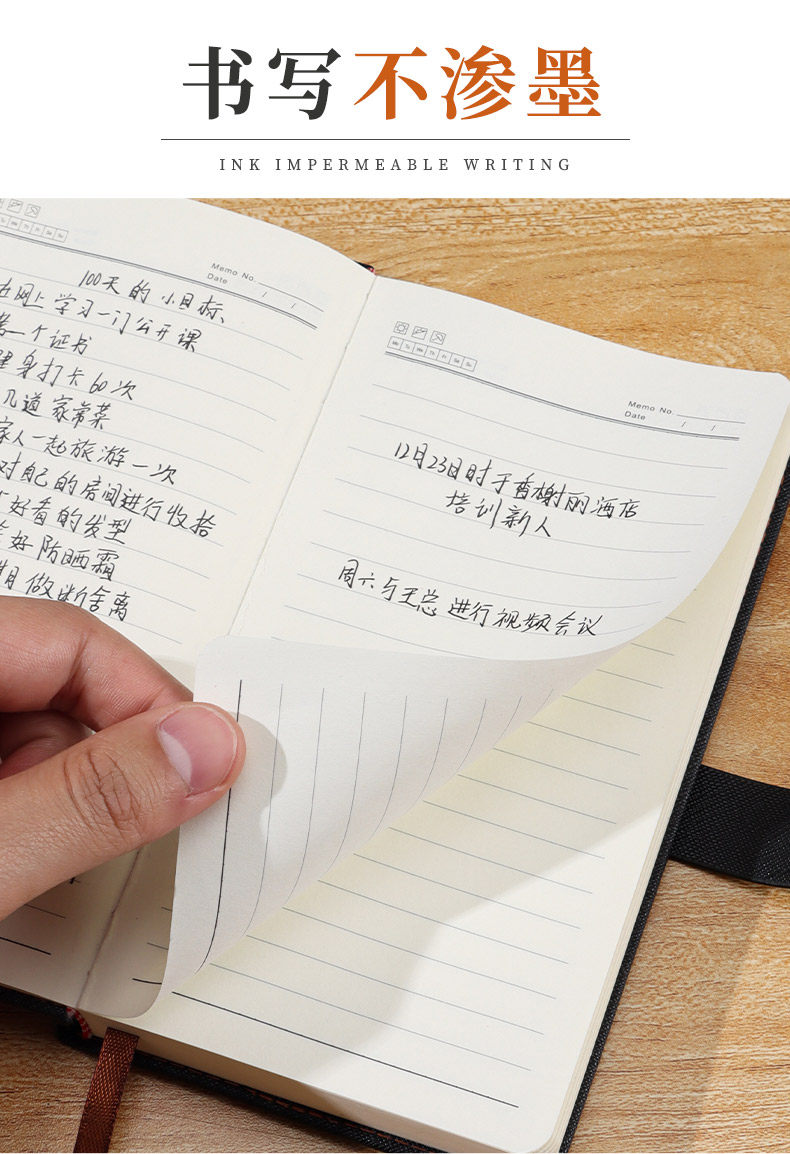 书写不渗墨
INK IMPERMEABLE WRITING
Memo No.
Date / /
100天的小目标、
在网上学习一门公开课
一个证书
健身打卡60次
几道家常菜
家人一起旅游一次
对自己的房间进行收拾
好看的发型
好防晒霜
月做断舍离
Mo Tu We Th Fr Sa Su
Memo No.
Date / /
12月23日时于香榭丽酒店
培训新人
周六与王总进行视频会议